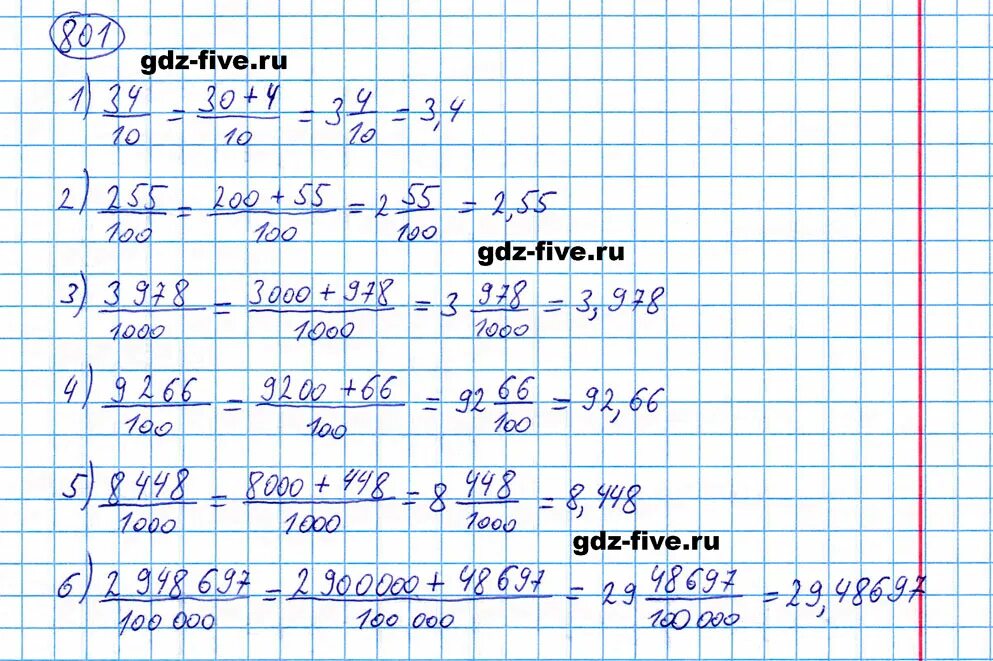 801
gdz-five.ru
1) 34/10 = (30 + 4)/10 = 3 4/10 = 3,4
2) 255/100 = (200 + 55)/100 = 2 55/100 = 2,55
gdz-five.ru
3) 3 978/1000 = (3000 + 978)/1000 = 3 978/1000 = 3,978
4) 9 266/100 = (9200 + 66)/100 = 92 66/100 = 92,66
5) 8 448/1000 = (8000 + 448)/1000 = 8 448/1000 = 8,448
gdz-five.ru
6) 2 948 697/100 000 = (2 900 000 + 48 697)/100 000 = 29 48697/100 000 = 29,48697